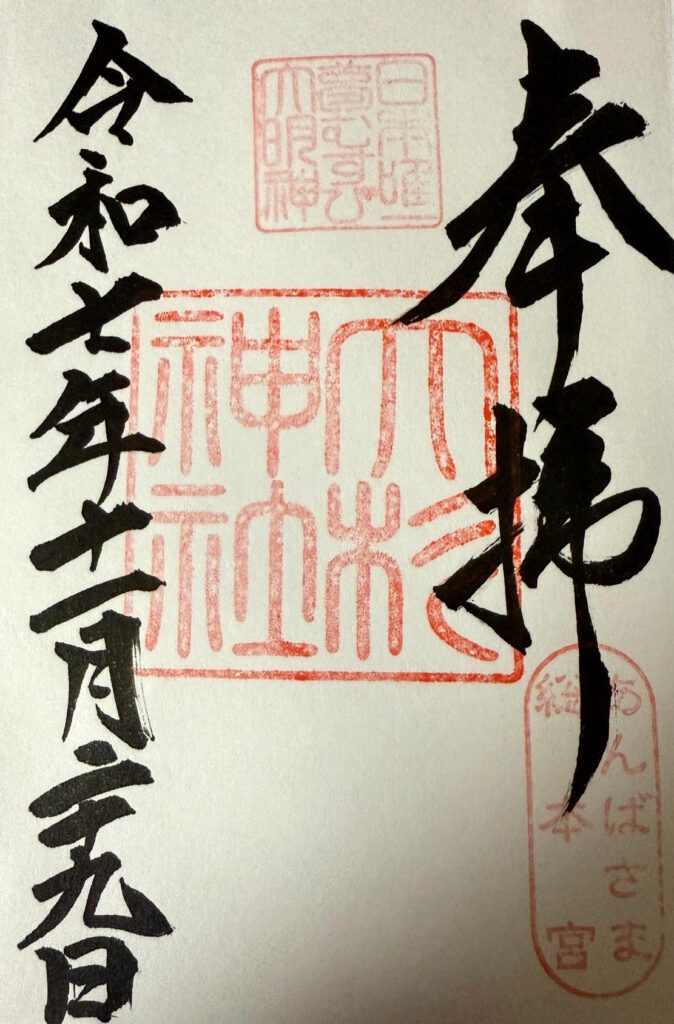 奉拝
日本唯一
夢むすび
大明神
大杉
神社
あんばさま
総本宮
令和七年十一月二十九日